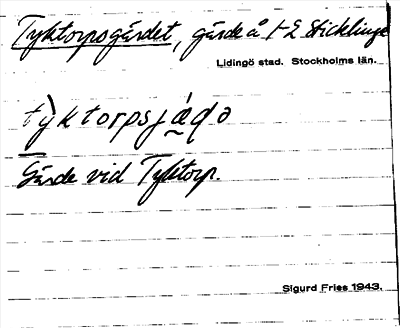 Tyktorpsgärdet, gärde å 1-2 Sticklinge
Lidingö stad. Stockholms län.
tỳktorpsjá̱ḍə
Gärde vid Tyktorp.
Sigurd Fries 1943.